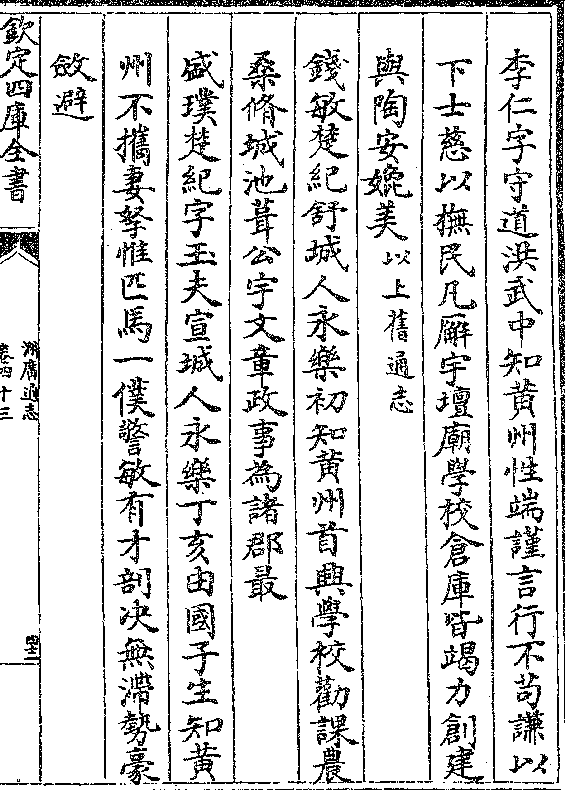 李仁字守道洪武中知黄州性端謹言行不苟謙以
下士慈以撫民凡廨宇壇廟學校倉庫皆竭力創建
與陶安媲美以上舊通志
錢敏楚紀舒城人永樂初知黄州首興學校勸課農
桑脩城池葺公宇文章政事為諸郡最
盛璞楚紀字玉夫宣城人永樂丁亥由國子生知黄
州不攜妻孥惟匹馬一僕警敏有才剖决無滯勢豪
斂避
欽定四庫全書
湖廣通志
卷四十三